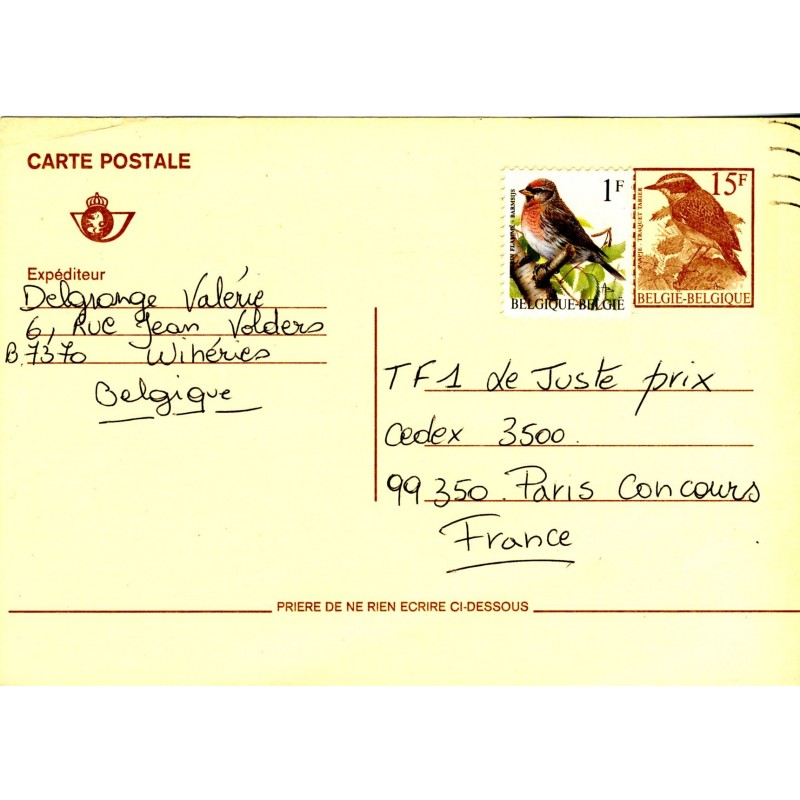 CARTE POSTALE
1F
15F
BARMSIJS
TRAQUET TARIER
BELGIQUE-BELGIË
BELGIË-BELGIQUE
Expéditeur
Delgrange Valérie
6, Rue Jean Volders
B.7370 Wihéries
Belgique
TF1 Le Juste prix
Cedex 3500.
99350. Paris Concours
France
PRIERE DE NE RIEN ECRIRE CI-DESSOUS